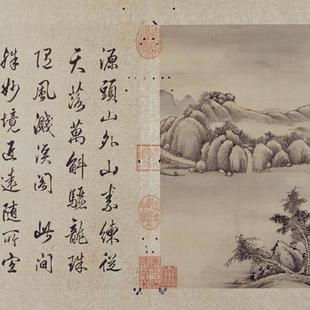 源頭山外山素練從
天落萬斛驪龍珠
隨風濺溪閣 此間
殊妙境近遠隨所宜